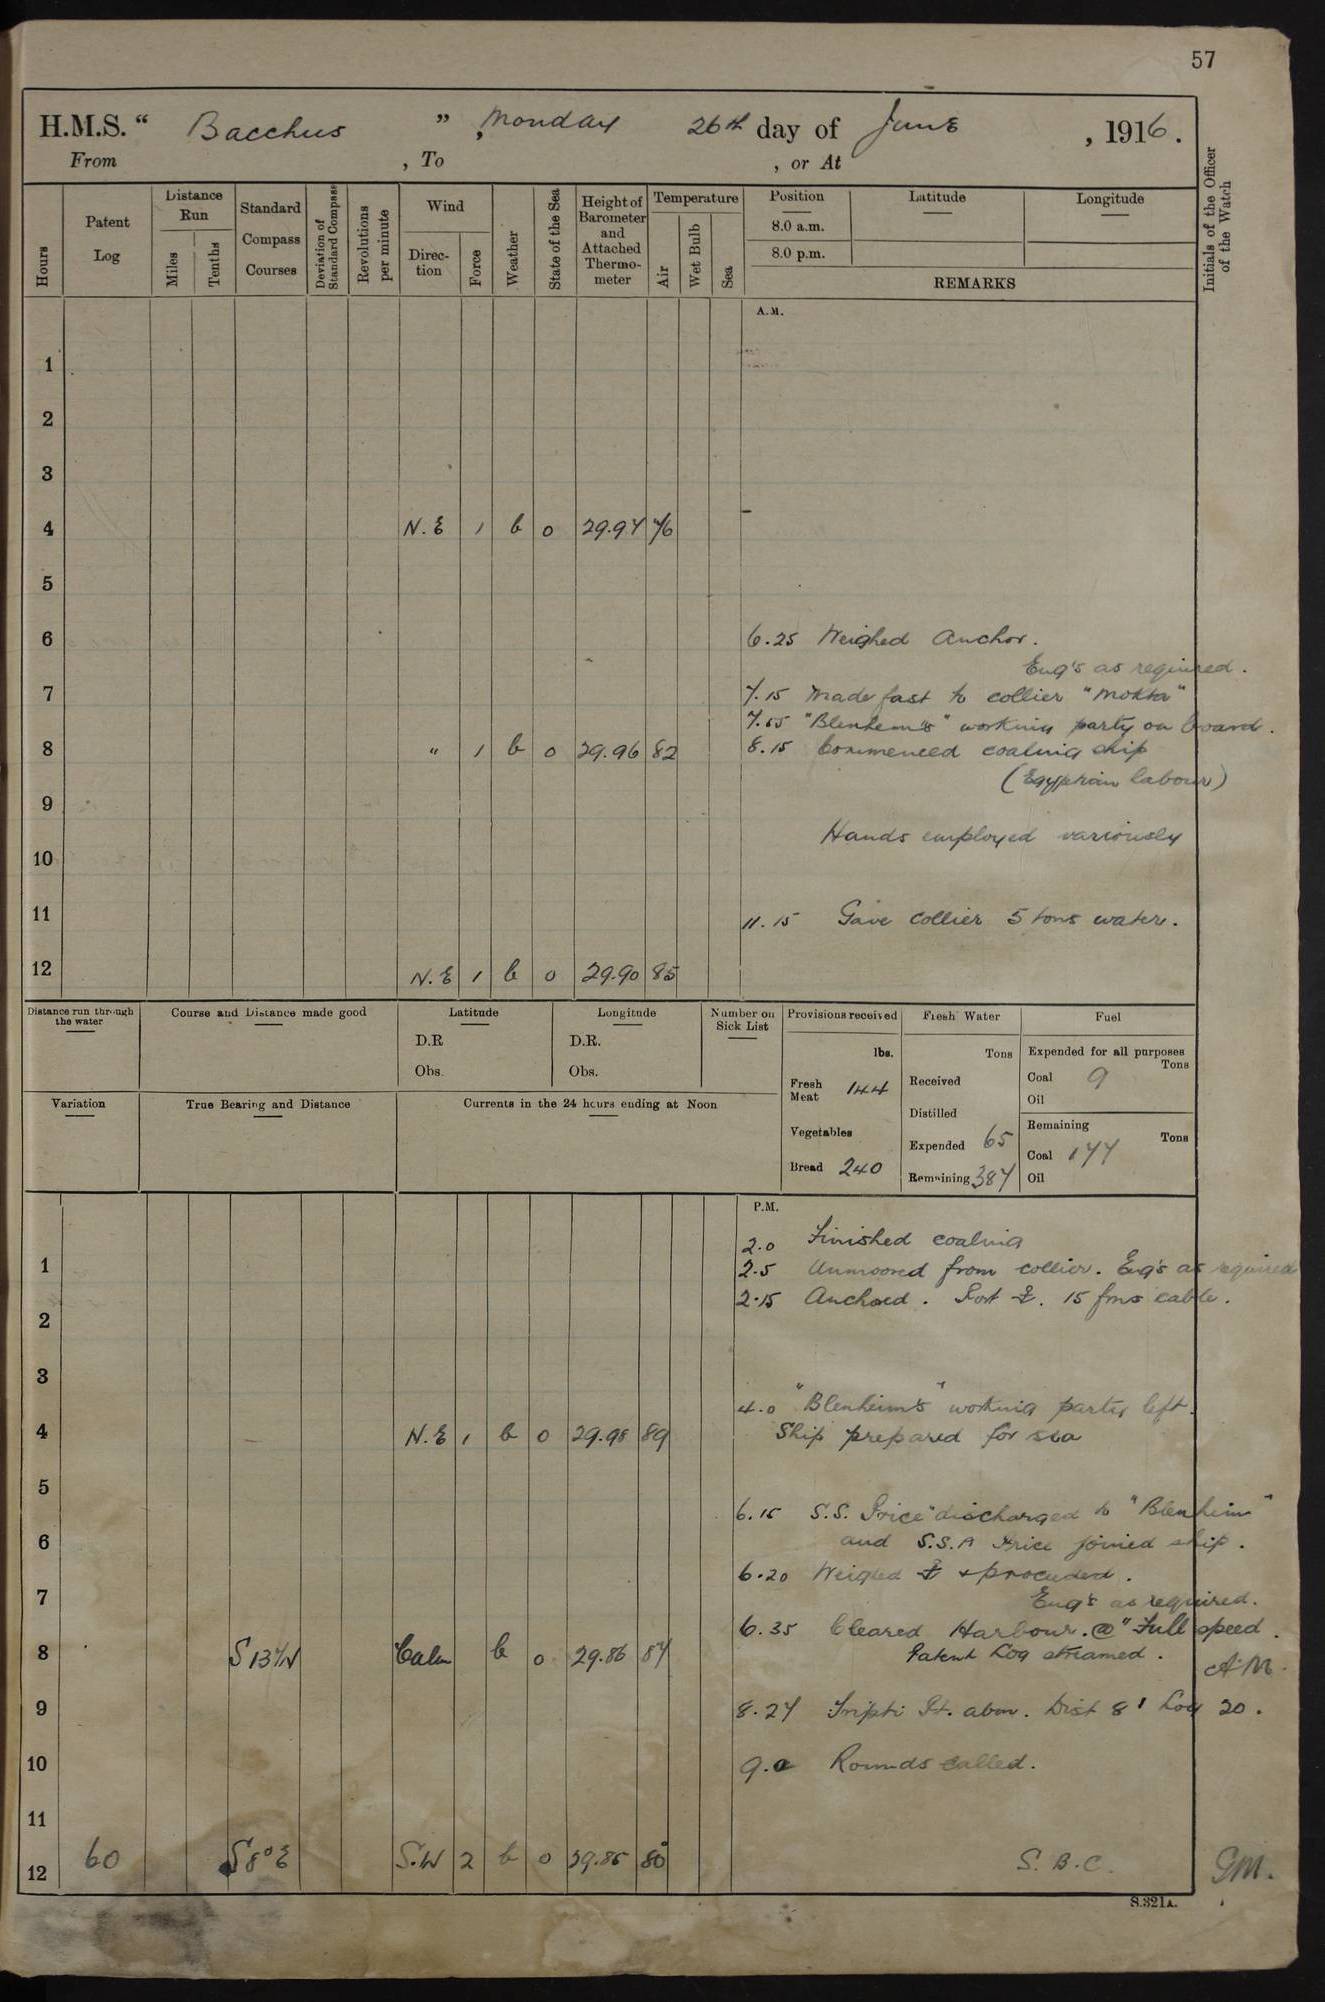 57
H.M.S. “ Bacchus ” , Monday 26th day of June , 1916.
From , To , or At
Hours
Patent Log
Distance Run
Miles
Tenths
Standard Compass Courses
Deviation of Standard Compass
Revolutions per minute
Wind
Direction
Force
Weather
State of the Sea
Height of Barometer and Attached Thermometer
Temperature
Air
Wet Bulb
Sea
Position
8.0 a.m.
8.0 p.m.
Latitude
Longitude
REMARKS
Initials of the Officer of the Watch
A.M.
1
2
3
4 N.E 1 b 0 29.97 76
5
6 6.25 Weighed Anchor.
Eng's as required.
7 7.15 Made fast to collier "Mokta"
7.55 "Blenheim's" working party on board.
8 " 1 b 0 29.96 82 8.15 Commenced coaling ship
(Egyptian labour)
9
Hands employed variously
10
11 11.15 Gave collier 5 tons water.
12 N.E 1 b 0 29.90 85
Distance run through the water
Course and Distance made good
Latitude
D.R
Obs.
Longitude
D.R.
Obs.
Number on Sick List
Provisions received
lbs.
Fresh Meat 144
Vegetables
Bread 240
Fresh Water
Tons
Received
Distilled
Expended 65
Remaining 387
Fuel
Expended for all purposes
Tons
Coal 9
Oil
Remaining
Tons
Coal 177
Oil
Variation
True Bearing and Distance
Currents in the 24 hours ending at Noon
P.M.
2.0 Finished coaling
1 2.5 Unmoored from collier. Eng's as required
2.15 Anchored. Port ⚓. 15 fms cable.
2
3
4.0 "Blenheim's" working party left.
4 N.E 1 b 0 29.98 89 Ship prepared for sea
5
6.15 S.S. Price discharged to "Blenheim"
6 and S.S.A Price joined ship.
6.20 Weighed ⚓ & proceeded.
7 Eng's as required.
6.35 Cleared Harbour. @ "Full speed.
8 S 13 W Calm b 0 29.86 84 Patent Log streamed. AM.
9 8.27 Tripti Pt. abm. Dist 8' Log 20.
10 9.0 Rounds called.
11
12 60 S 8° E S.W 2 b 0 29.85 80 S.B.C. GM.
S.321A.